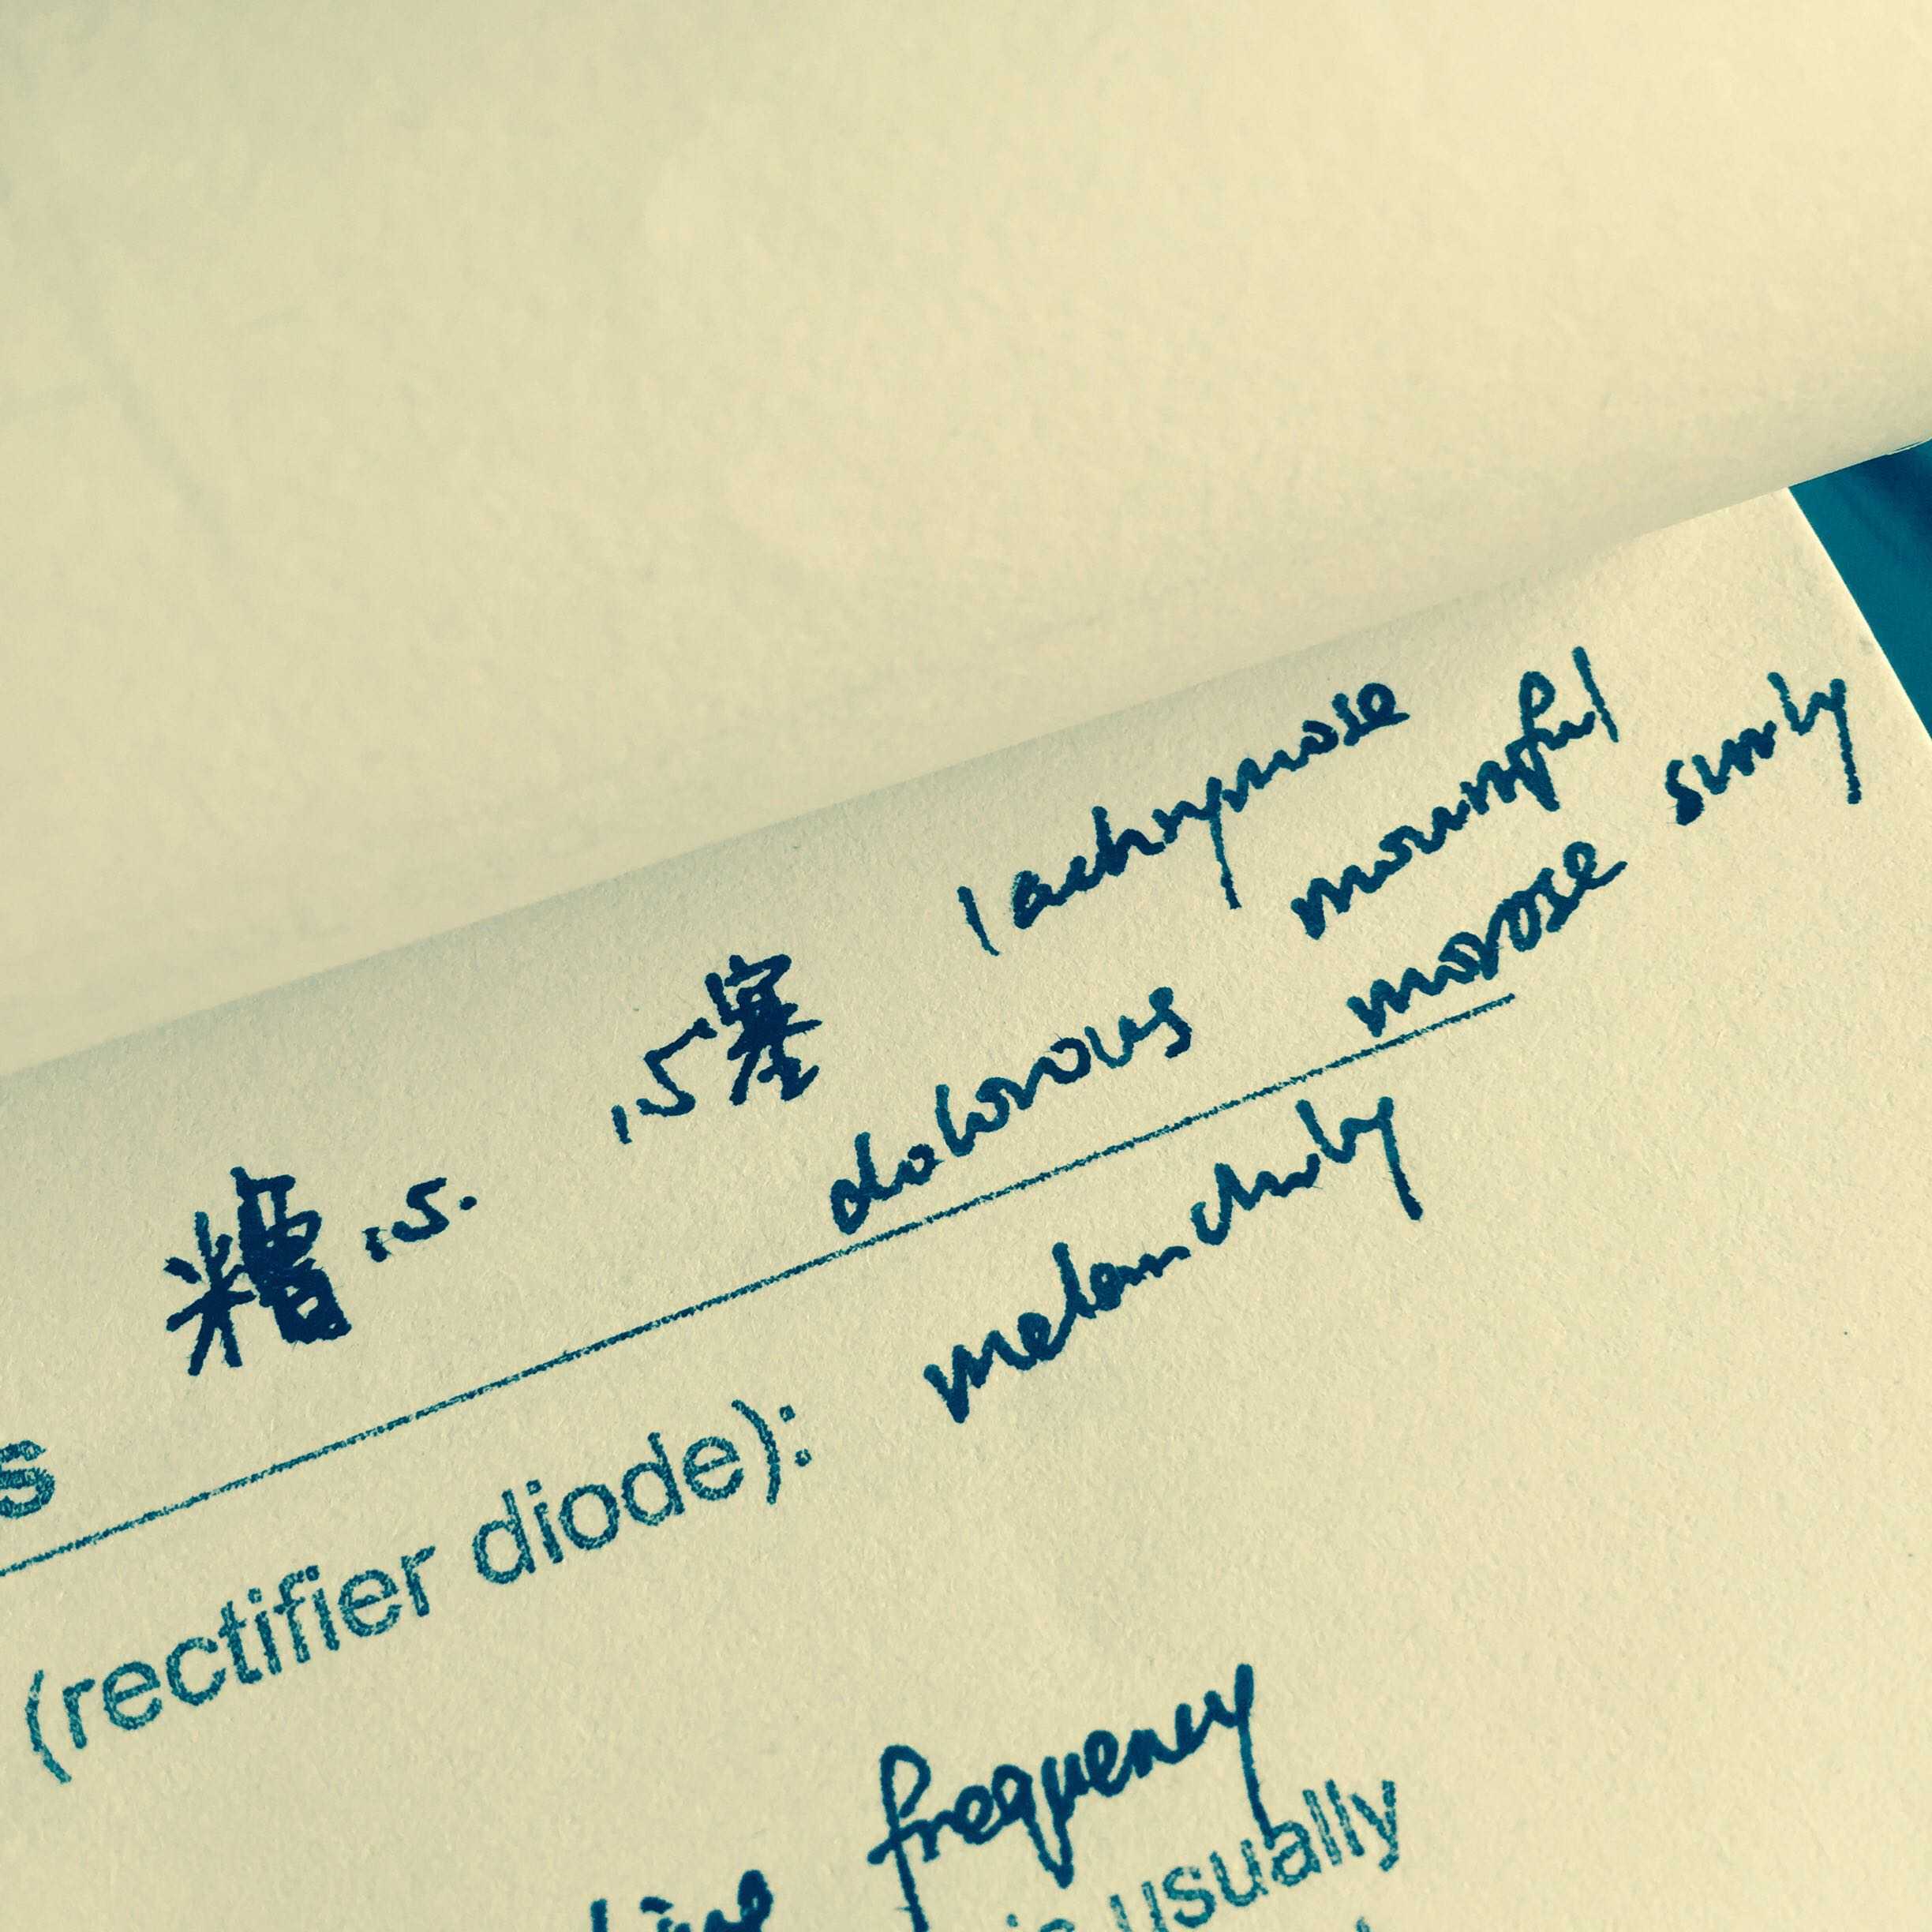 lachrymose
糟心. 心塞 dolorous mournful
morose surly
s
melancholy
(rectifier diode):
frequency
is usually